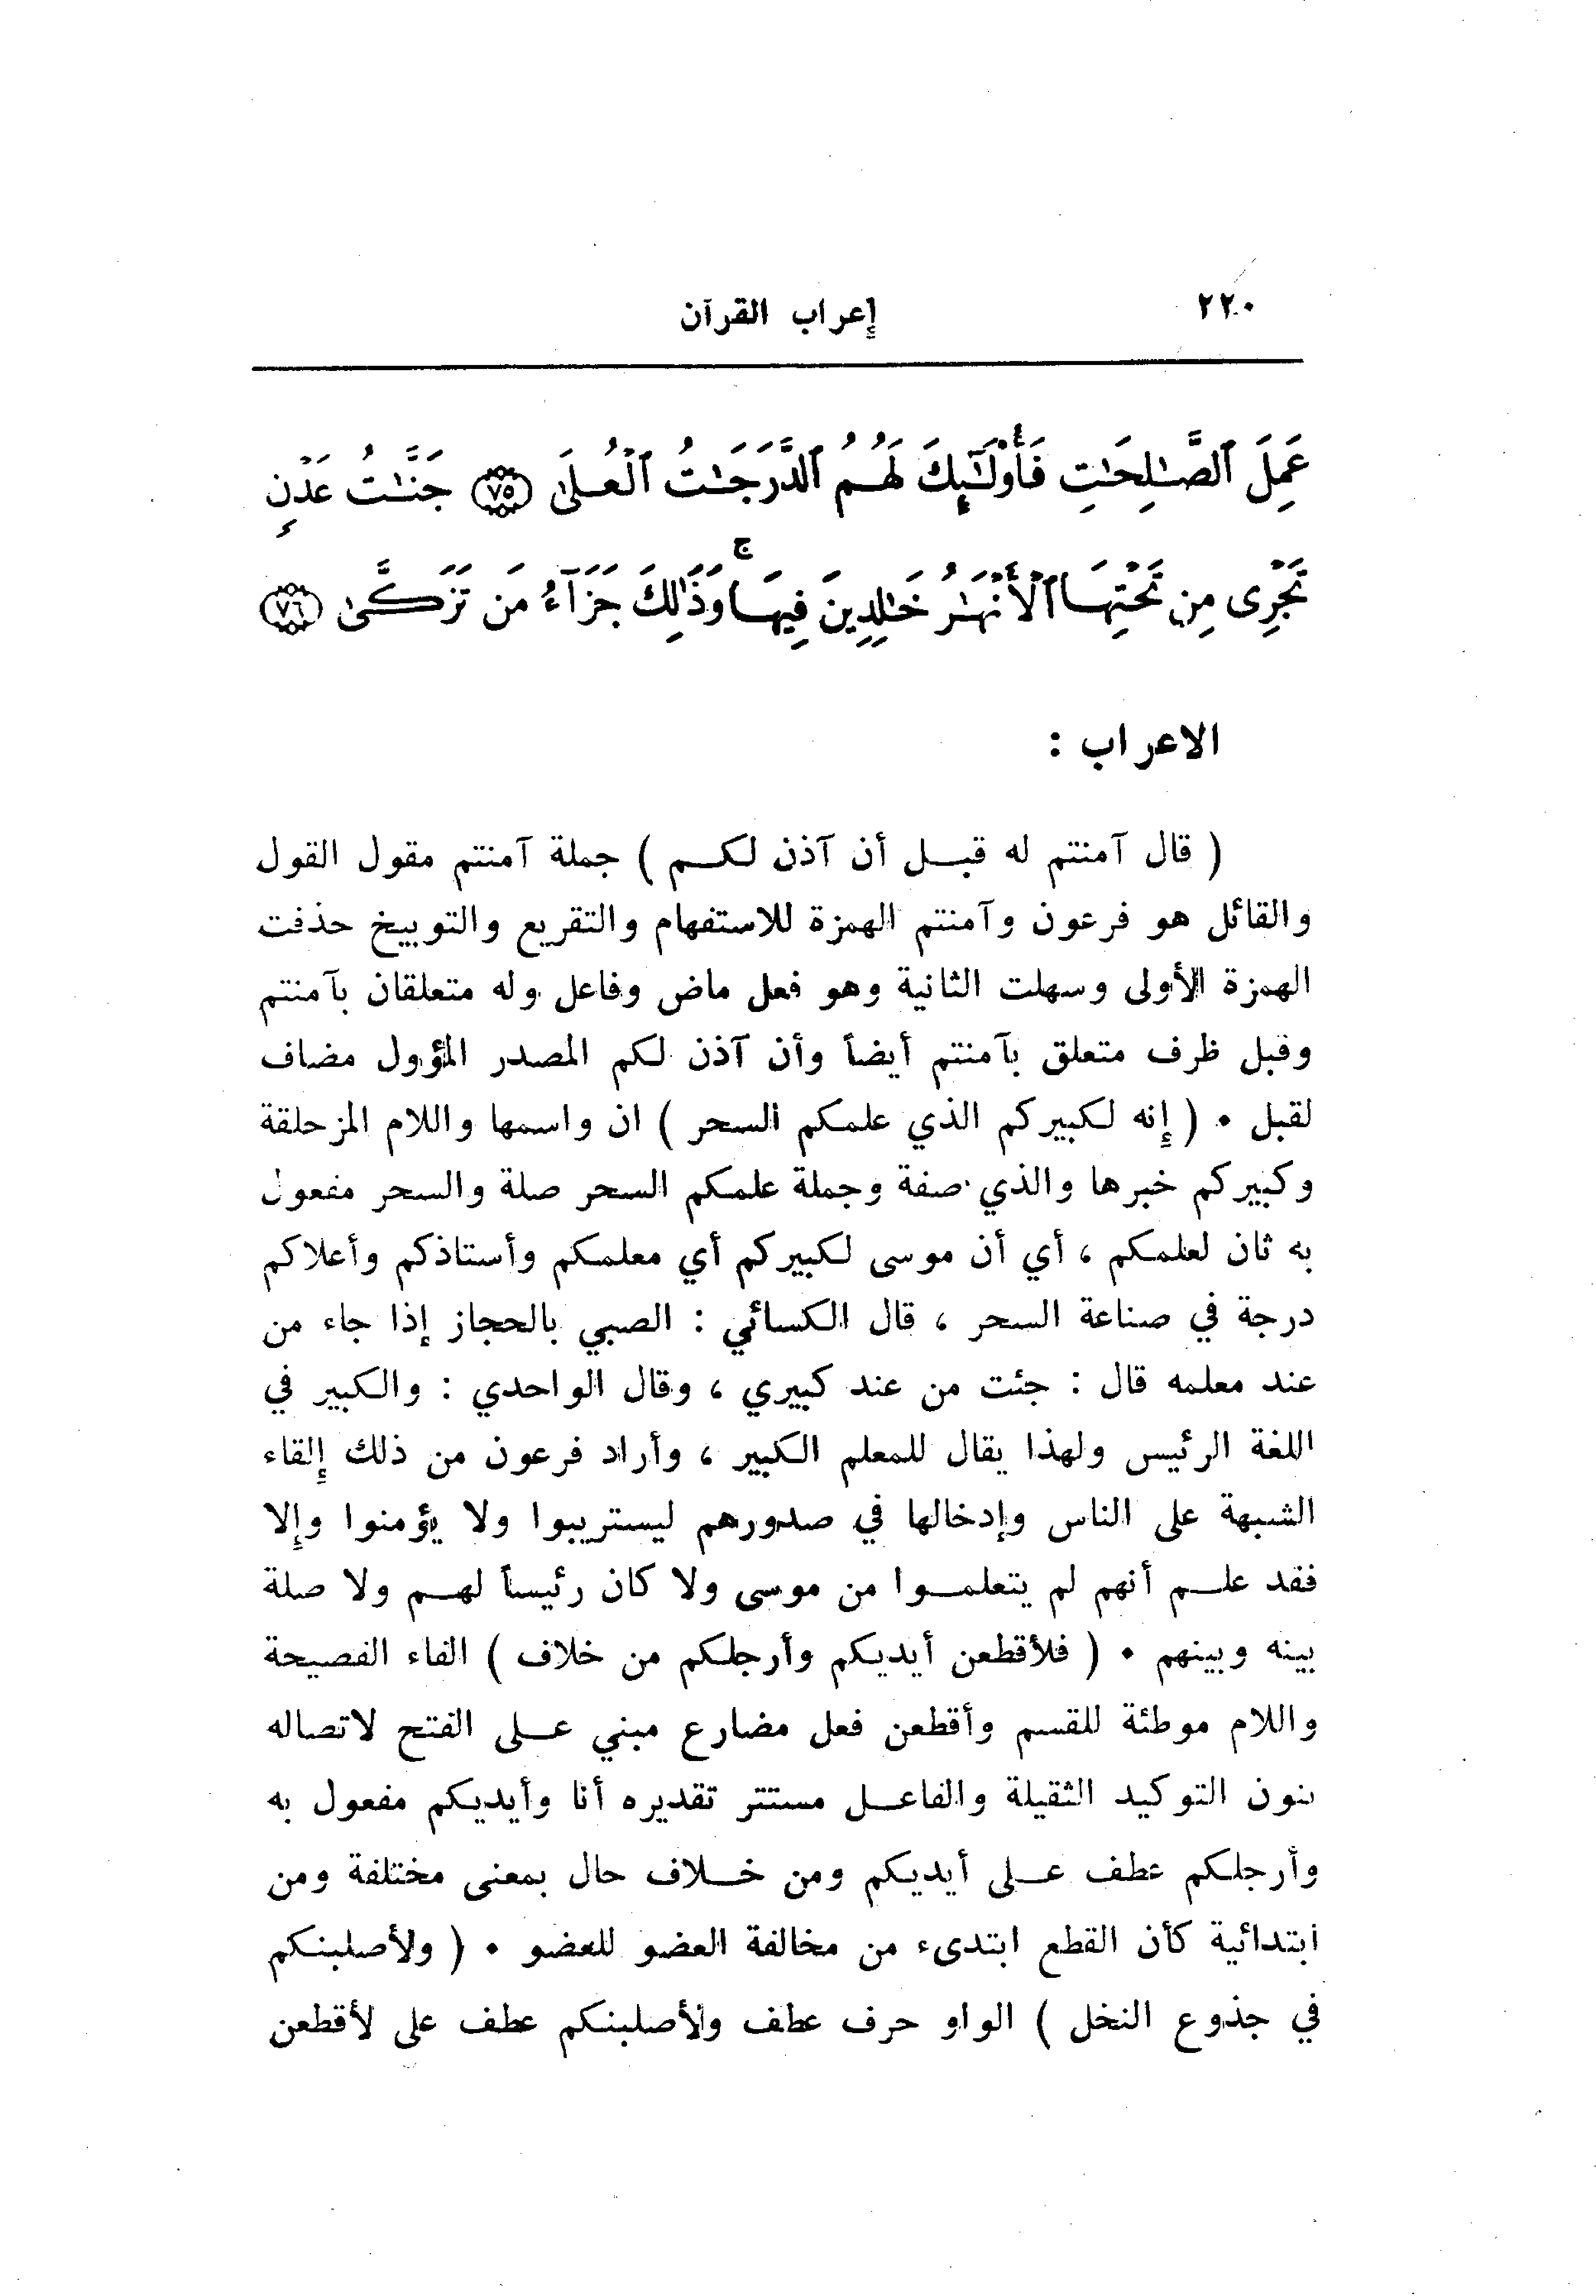 ٢٢٠
إعراب القرآن
عَمِلَ ٱلصَّـٰلِحَـٰتِ فَأُو۟لَـٰٓئِكَ لَهُمُ ٱلدَّرَجَـٰتُ ٱلْعُلَىٰ ٧٥ جَنَّـٰتُ عَدْنٍ
تَجْرِى مِن تَحْتِهَا ٱلْأَنْهَـٰرُ خَـٰلِدِينَ فِيهَا ۚ وَذَٰلِكَ جَزَآءُ مَن تَزَكَّىٰ ٧٦
الاعراب :
( قال آمنتم له قبل أن آذن لكم ) جملة آمنتم مقول القول
والقائل هو فرعون وآمنتم الهمزة للاستفهام والتقريع والتوبيخ حذفت
الهمزة الأولى وسهلت الثانية وهو فعل ماض وفاعل وله متعلقان بآمنتم
وقبل ظرف متعلق بآمنتم أيضاً وأن آذن لكم المصدر المؤول مضاف
لقبل • ( إنه لكبيركم الذي علمكم السحر ) ان واسمها واللام المزحلقة
وكبيركم خبرها والذي صفة وجملة علمكم السحر صلة والسحر مفعول
به ثان لعلمكم ، أي أن موسى لكبيركم أي معلمكم وأستاذكم وأعلاكم
درجة في صناعة السحر ، قال الكسائي : الصبي بالحجاز إذا جاء من
عند معلمه قال : جئت من عند كبيري ، وقال الواحدي : والكبير في
اللغة الرئيس ولهذا يقال للمعلم الكبير ، وأراد فرعون من ذلك إلقاء
الشبهة على الناس وإدخالها في صدورهم ليستريبوا ولا يؤمنوا وإلا
فقد علم أنهم لم يتعلموا من موسى ولا كان رئيساً لهم ولا صلة
بينه وبينهم • ( فلأقطعن أيديكم وأرجلكم من خلاف ) الفاء الفصيحة
واللام موطئة للقسم وأقطعن فعل مضارع مبني على الفتح لاتصاله
بنون التوكيد الثقيلة والفاعل مستتر تقديره أنا وأيديكم مفعول به
وأرجلكم عطف على أيديكم ومن خلاف حال بمعنى مختلفة ومن
ابتدائية كأن القطع ابتدىء من مخالفة العضو للعضو • ( ولأصلبنكم
في جذوع النخل ) الواو حرف عطف ولأصلبنكم عطف على لأقطعن